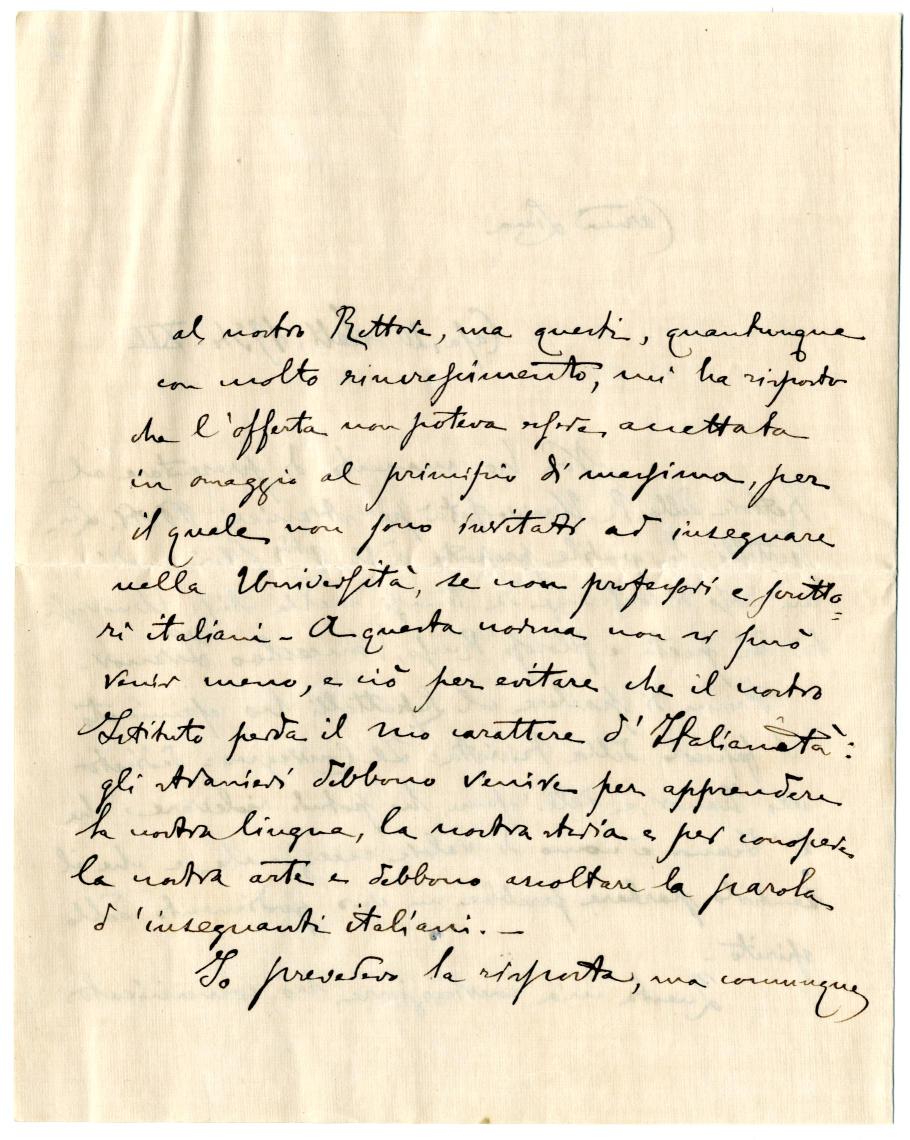 al nostro Rettore, ma questi, quantunque
con molto rincrescimento, mi ha risposto
che l'offerta non poteva essere accettata
in omaggio al principio di massima, per
il quale non sono invitati ad insegnare
nella Università, se non professori e scritto=
ri italiani - A questa norma non si può
venir meno, e ciò per evitare che il nostro
Istituto perda il suo carattere d'Italianità:
gli stranieri debbono venire per apprendere
la nostra lingua, la nostra storia e per conoscere
la nostra arte e debbono ascoltare la parola
d'insegnanti italiani. -
Io prevedevo la risposta, ma comunque